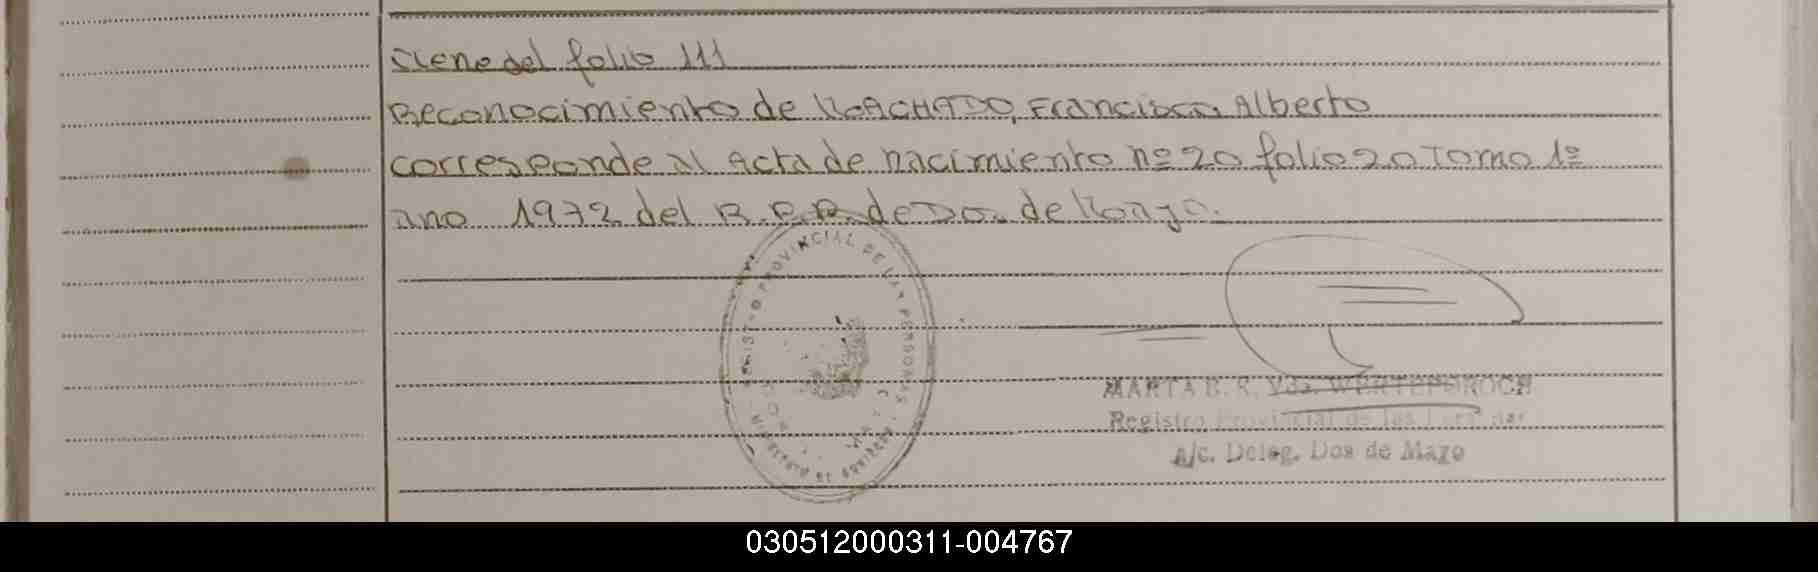 viene del folio 111
Reconocimiento de MACHADO, Francisco Alberto
corresponde al Acta de nacimiento nº 20 folio 20 Tomo 1º
año 1972 del R.P.P. de Dos de Mayo.
REGISTRO PROVINCIAL DE LAS PERSONAS
MINISTERIO DE GOBIERNO
MARTA E. R. Vda.
Registro Provincial de las Personas
A/c. Deleg. Dos de Mayo
030512000311-004767